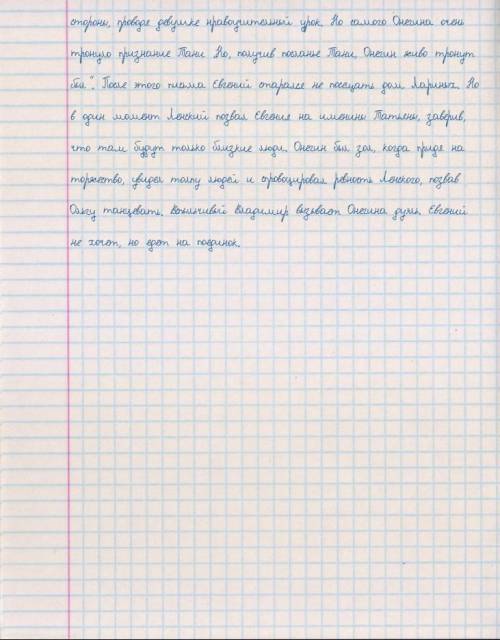 стороны, проведя девушке нравоучительный урок. Но самого Онегина очень
тронуло признание Тани Но, получив посланье Тани, Онегин живо тронут
был". После этого письма Евгений старался не посещать дом Лариных. Но
в один момент Ленский позвал Евгения на именины Татьяны, заверив,
что там будут только близкие люди. Онегин был зол, когда придя на
торжество, увидел толпу людей и спровоцировал ревность Ленского, позвав
Ольгу танцевать. Вспыльчивый Владимир вызывает Онегина дуэль. Евгений
не хочет, но едет на поединок.